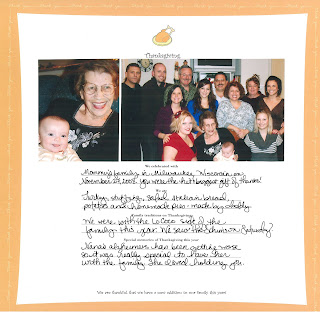 Thanksgiving
We celebrated with
Mommy's family in Milwaukee, Wisconsin on
November 29, 2009. You were the best biggest gift of thanks!
We ate
Turkey, stuffing, salad, Italian bread,
potatoes and homemade pies - made by daddy.
Family traditions on Thanksgiving
We were with the LoCoco side of the
family this year. We saw the Johnsons Saturday!
Special memories of Thanksgiving this year
Nana's alzheimers has been getting worse
so it was really special to have her
with the family. She loved holding you.
We are thankful that we have a new addition to our family this year!